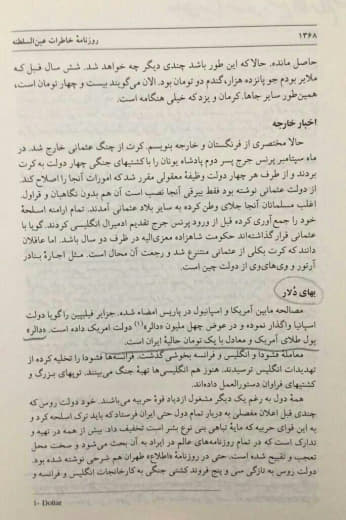 ۱۳۶۸
روزنامهٔ خاطرات عین‌السلطنه
حاصل مانده. حالا که این طور باشد چندی دیگر چه خواهد شد. شش سال قبل که
ملایر بودم جو پانزده هزار، گندم دو تومان بود. الان می‌گویند بیست و چهار تومان است،
همین‌طور سایر جاها. کرمان و یزد که خیلی هنگامه است.
اخبار خارجه
حالا مختصری از فرنگستان و خارجه بنویسم. کرت از چنگ عثمانی خارج شد. در
ماه سپتامبر پرنس جرج پسر دوم پادشاه یونان را با کشتیهای جنگی چهار دولت به کرت
بردند و از طرف هر چهار دولت وظیفهٔ معقولی مقرر شد که امورات آنجا را اصلاح کند.
از دولت عثمانی نوشته بود فقط بیرقی آنجا نصب است آن هم بدون نگاهبان و قراول.
اغلب مسلمانان آنجا جلای وطن کرده به سایر بلاد عثمانی آمدند. تمام ارامنه اسلحهٔ
خود را جمع‌آوری کرده قبل از ورود پرنس جرج تقدیم ادمیرال انگلیسی کردند. گویا با
عثمانی قرار گذاشته‌اند حکومت شاهزاده معزی‌الیه در ظرف دو سال باشد. اما عاقلان
دانند که کرت بکلی از عثمانی منتزع شد و رجعت آن محال است. مثل اجارهٔ بنادر
آرتور و وی‌های‌وی از دولت چین است.
بهای دُلار
مصالحه مابین آمریکا و اسپانیول در پاریس امضاء شده. جزایر فیلیپین را گویا دولت
اسپانیا واگذار نموده و در عوض چهل ملیون «دالر»(۱) دولت امریک داده است. «دالر»
پول طلای آمریک و معادل با یک تومان حالیهٔ ایران است.
معامله فشودا و انگلیس و فرانسه بخوشی گذشت. فرانسه‌ها فشودا را تخلیه کرده از
تهدیدات انگلیس ترسیدند. هنوز هم انگلیسی‌ها تهیهٔ جنگ می‌بینند. توپهای بزرگ و
کشتیهای فراوان دستورالعمل داده‌اند.
همهٔ دول به رغم یک دیگر مشغول ازدیاد قوهٔ حربیه می‌باشند. خود دولت روس که
چندی قبل اعلان مفصلی به دربار تمام دول حتی ایران فرستاد که باید ترک اسلحه کرد و
به این قوای حربیه که مایهٔ تباهی بنی نوع بشر است تخفیف داد. بیش از همه در تهیه و
تدارک است که در تمام روزنامه‌های عالم در ایراد به آن بحث می‌شود و سخت محل
تعجب و تقبیح شده است. حتی در روزنامهٔ «اطلاع» طهران هم شرحی نوشته شده بود.
دولت روس به تازگی سی و پنج فروند کشتی جنگی به کارخانجات انگلیس و فرانسه و
1- Dollar